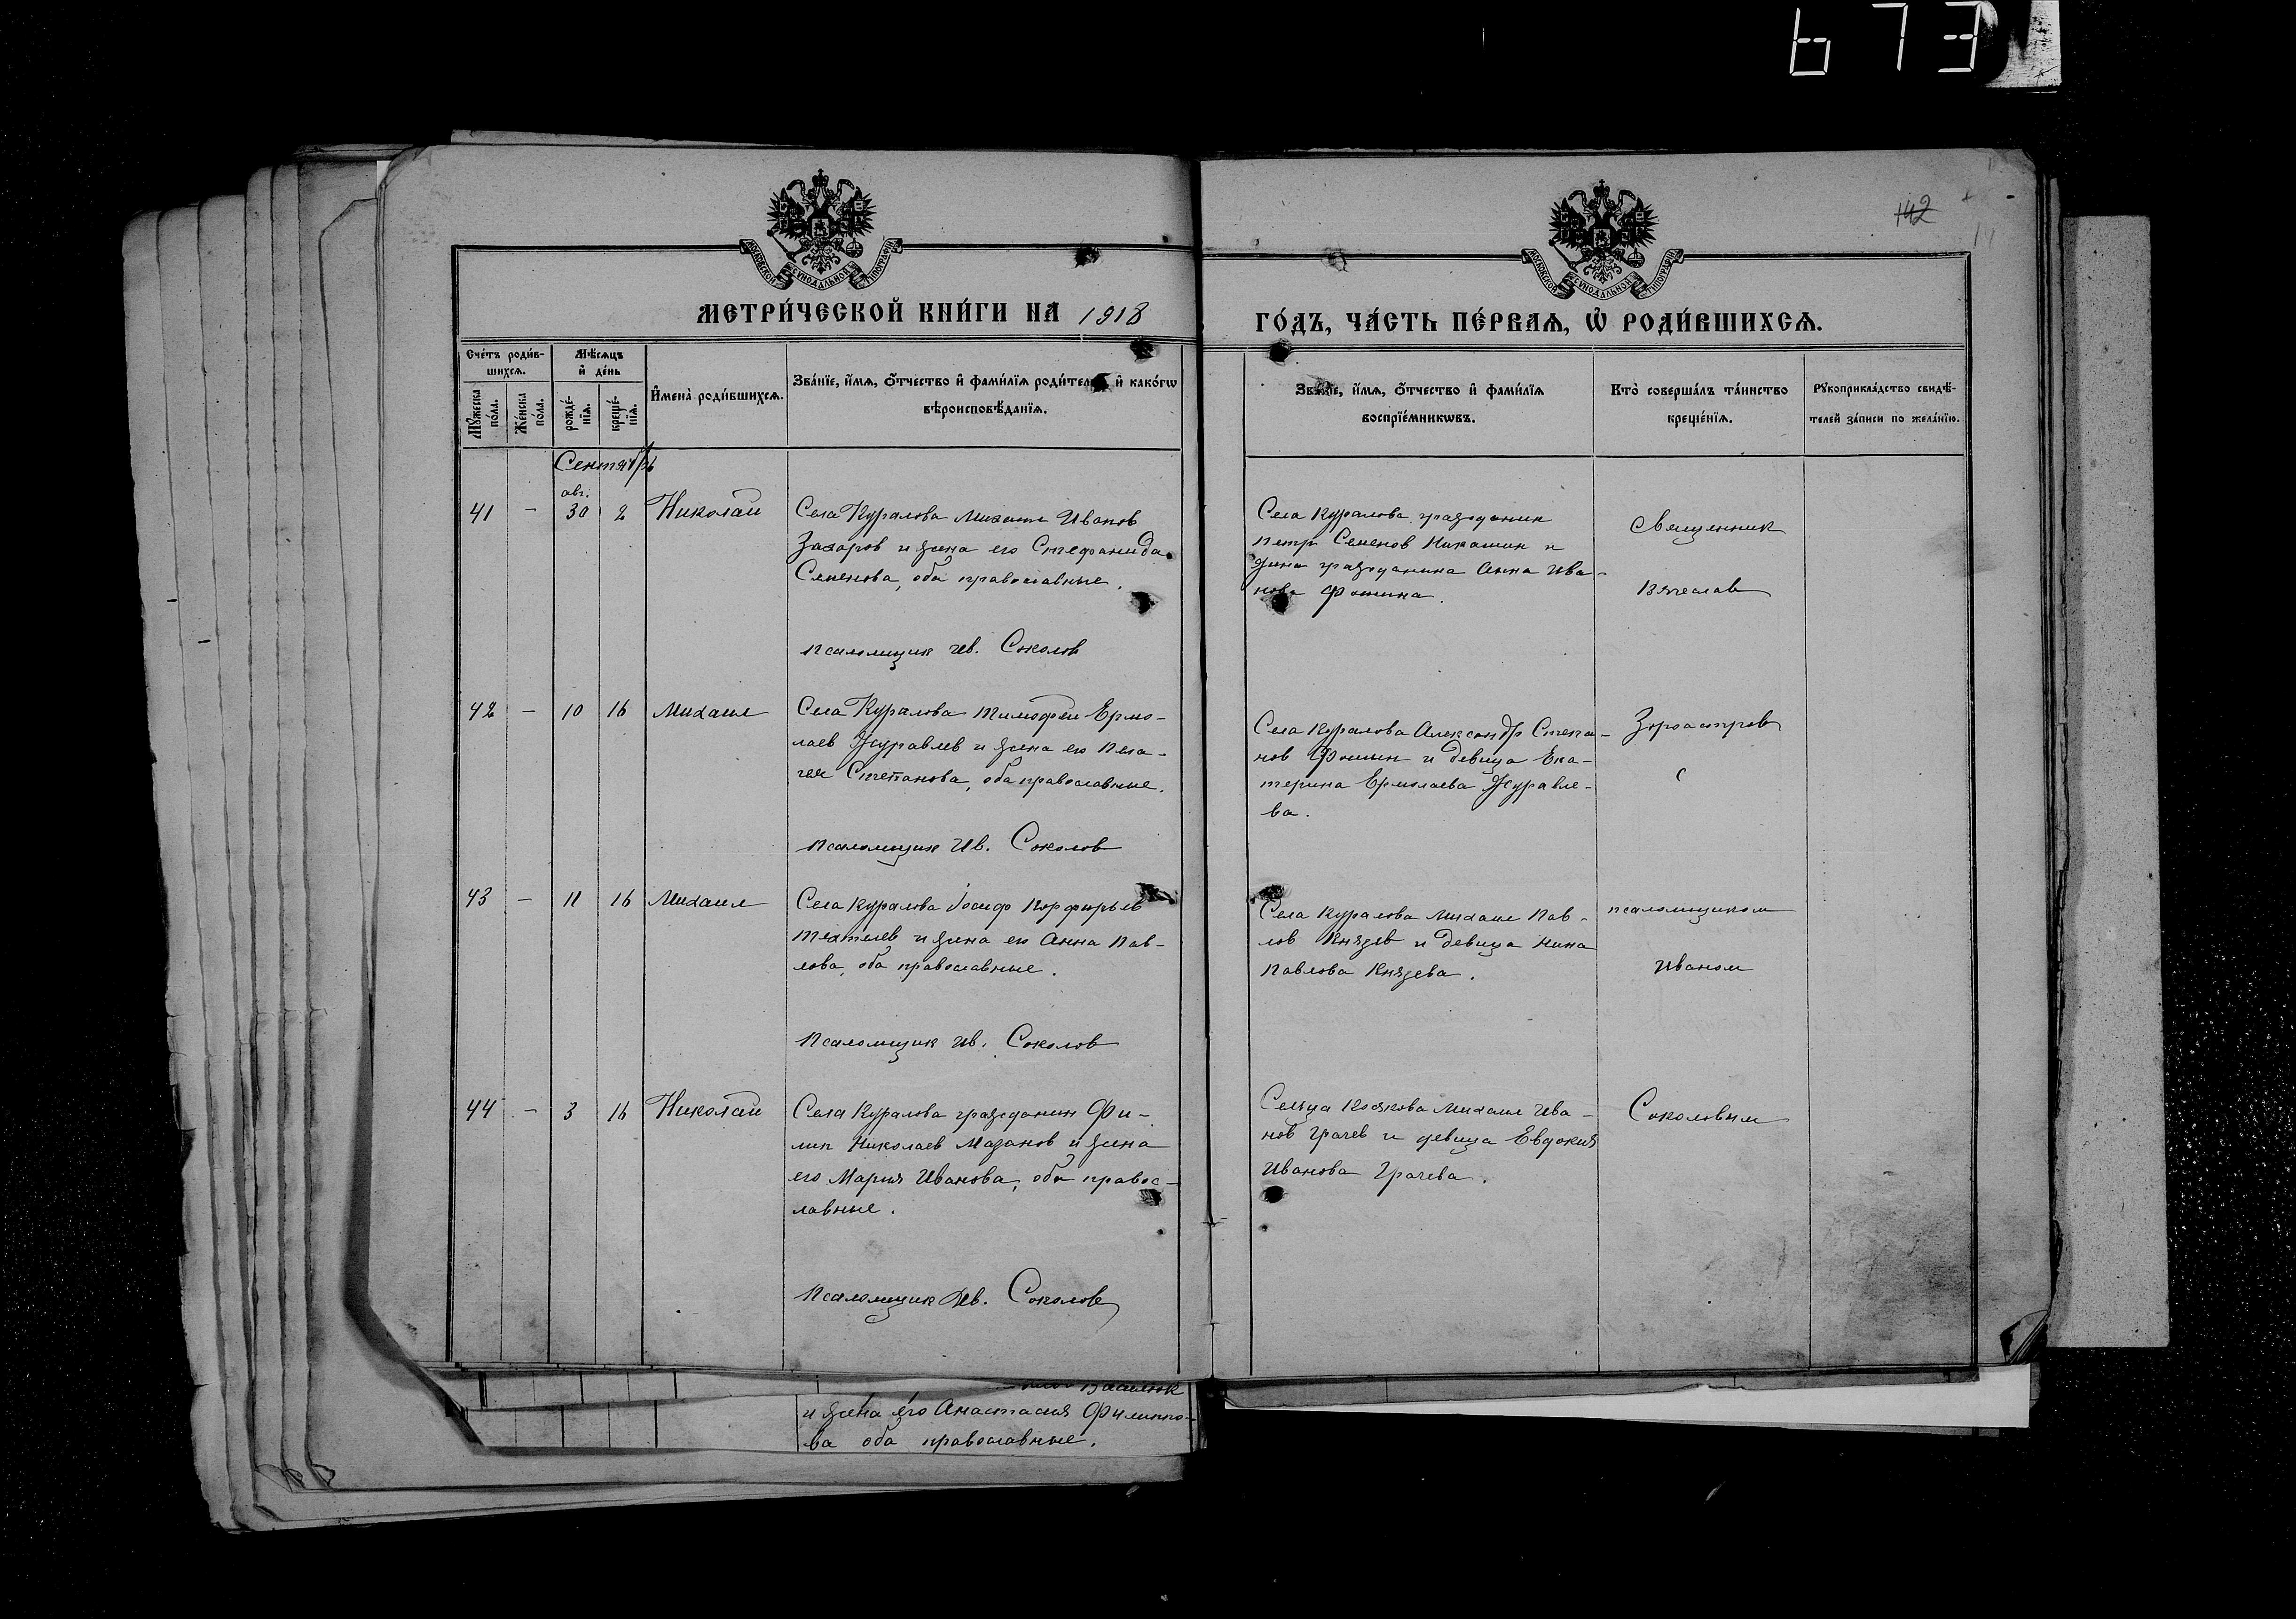 673
142
МОСКОВСКОЙ СѴНОДАЛЬНОЙ ТИПОГРАФІИ
МОСКОВСКОЙ СѴНОДАЛЬНОЙ ТИПОГРАФІИ
МЕТРИ́ЧЕСКОЙ КНИ́ГИ НА 1918
ГО́ДЪ, ЧА́СТЬ ПЕ́РВАѦ, Ѡ҆ РОДИ́ВШИХСѦ.
Сче́тъ роди́в-
шихсѧ.
Мꙋ́жеска по́ла.
Же́нска по́ла.
Мѣ́сѧцъ
и҆ де́нь
рожде́-
нїѧ.
креще́-
нїѧ.
И҆мена̀ роди́вшихсѧ.
Зва́нїе, и҆́мѧ, ѻ҆́тчество и҆ фами́лїѧ роди́телей и҆ како́гѡ
вѣроисповѣ́данїѧ.
Зва́нїе, и҆́мѧ, ѻ҆́тчество и҆ фами́лїѧ
воспрїе́мникѡвъ.
Кто̀ соверша́лъ та́инство
креще́нїѧ.
Рꙋкоприкла́дство свидѣ́-
телей за́писи по жела́нїю.
Сентябрь
авг.
41 - 30 2 Николай
Села Куралова Михаил Иванов
Захаров и жена его Стефанида
Семенова, оба православные.
Псаломщик Ив. Соколов
Села Куралова гражданин
Петр Семенов Никошин и
жена гражданина Анна Ива-
нова Фомина.
Священник
Вячеслав
42 - 10 16 Михаил
Села Куралова Тимофей Ермо-
лаев Журавлев и жена его Пела-
гея Степанова, оба православные.
Псаломщик Ив. Соколов
Села Куралова Александр Степа-
нов Фомин и девица Ека-
терина Ермолаева Журавле-
ва.
Зороастров
с
43 - 11 16 Михаил
Села Куралова Иосиф Порфирьев
Техтелев и жена его Анна Пав-
лова, оба православные.
Псаломщик Ив. Соколов
Села Куралова Михаил Пав-
лов Князев и девица Нина
Павлова Князева.
псаломщиком
Иваном
44 - 3 16 Николай
Села Куралова гражданин Фи-
лип Николаев Мазанов и жена
его Мария Иванова, оба правос-
лавные.
Псаломщик Ив. Соколов
Сельца Коякова Михаил Ива-
нов Грачев и девица Евдокия
Иванова Грачева.
Соколовым
и жена его Анастасия Филиппо-
ва оба православные.